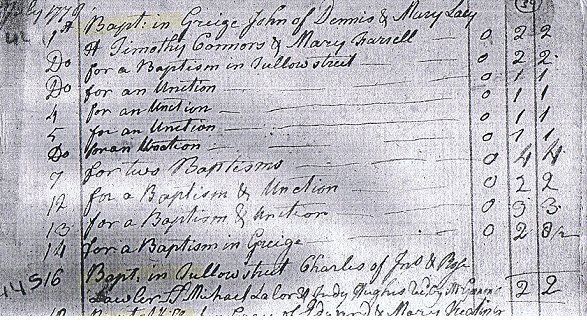 July 1779
1st Bapt: in Greige John of Dennis & Mary Lacy
Sp Timothy Connors & Mary Farsell — 0 2 2
Do for a Baptism in Tullow Street 0 2 2
Do for an Unction 0 1 1
4 for an Unction 0 1 1
5 for an Unction 0 1 1
Do for an Unction 0 1 1
7 for two Baptisms 0 4 4
12 for a Baptism & Unction 0 2 2
13 for a Baptism & Unction 0 3 3
14 for a Baptism in Greige 0 2
16 Bapt: in Tullow Street Charles of Jno & Rose
Lawler Sp Michael Lalor & Judy Hughes 2 2
of & Mary